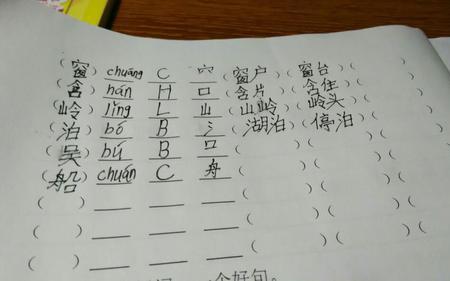 (窗) chuāng C 穴 (窗户) (窗台) ( )
(含) hán H 口 (含片) (含住) ( )
(岭) lǐng L 山 (山岭) (岭头) ( )
(泊) bó B 氵 (湖泊) (停泊) ( )
(吴) bú B 口 ( ) ( ) ( )
(船) chuán C 舟 ( ) ( ) ( )
( ) ( ) ( ) ( )
( ) ( ) ( ) ( )
( ) ( ) ( )
个好句。